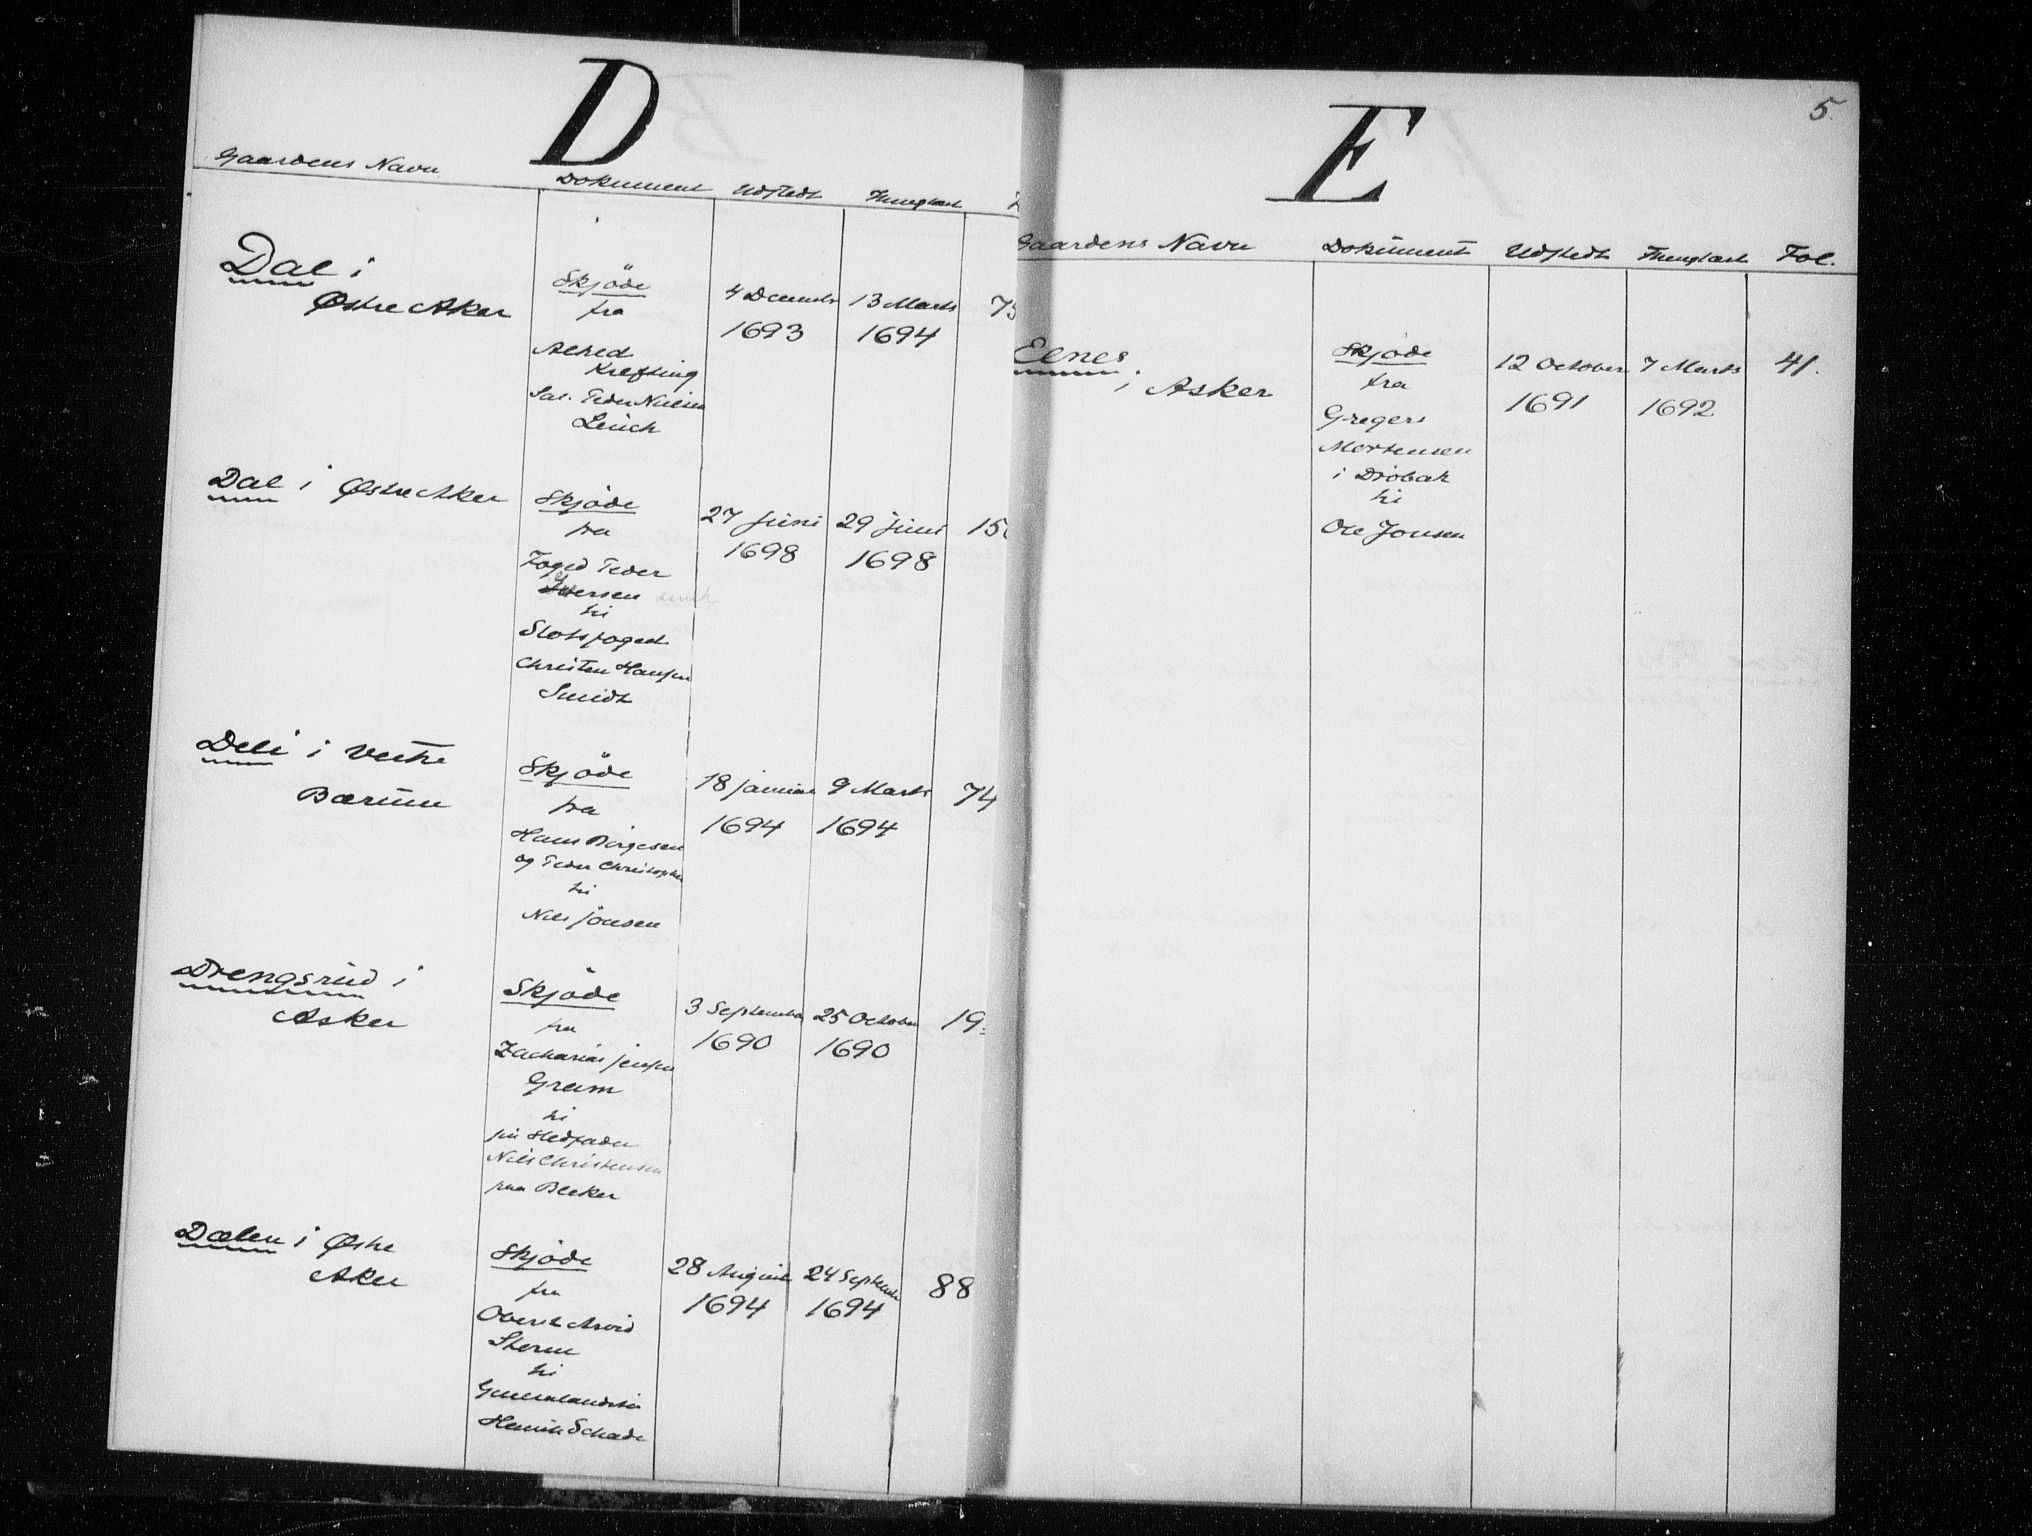 D
Gaardens Navn
Dokument Udstedt Thinglæst
Dal i
Østre Aker
Skjöde
fra
Alhed
Krefting
Sal. Peder Nielsen
Leuch
4 Decemb
1693
13 Marts
1694
Dal i Østre Aker
Skjöde
fra
Foged Peder
Iversen
til
Slotsfoged
Christen Hansen
Smidt
27 Juni
1698
29 Juni
1698
Deli i Vestre
Bærum
Skjöde
fra
Hans Börgesen
og Peder Christophe
til
Nils Jönsen
18 Januar
1694
9 Marts
1694
74
Drengsrud i
Asker
Skjöde
fra
Zacharias Jensen
Gram
til
sin Stedfader
Nils Christensen
paa Bleker
3 September
1690
25 October
1690
19
Dælen i Østre
Aker
Skjöde
fra
Oberst Arvid
Storm
til
Henrik Schade
28 August
1694
24 Septemb
1694
88
5.
E
Gaardens Navn Dokument Udstedt Thinglæst Fol.
Elnes
i Asker
Skjöde
fra
Gregers
Mortensen
i Dröbak
til
Ole Jonsen
12 October
1691
7 Marts
1692
41.